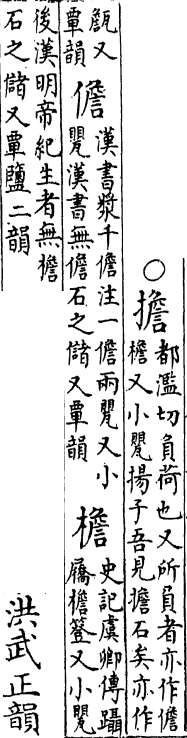 ○擔
都濫切負荷也又所負者亦作儋
檐又小甖揚子吾見擔石矣亦作
甔又
覃韻
儋
漢書漿千儋注一儋兩甖又小
甖漢書無儋石之儲又覃韻
檐
史記虞卿傳躡
屩檐簦又小甖
後漢明帝紀生者無檐
石之儲又覃鹽二韻
洪武正韻